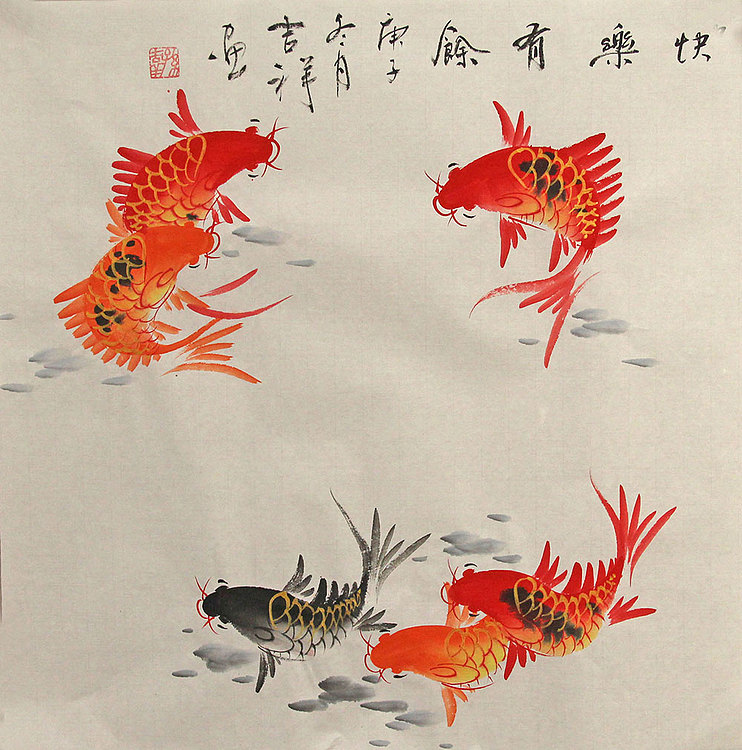 快樂有餘
庚子
冬月
吉祥
画